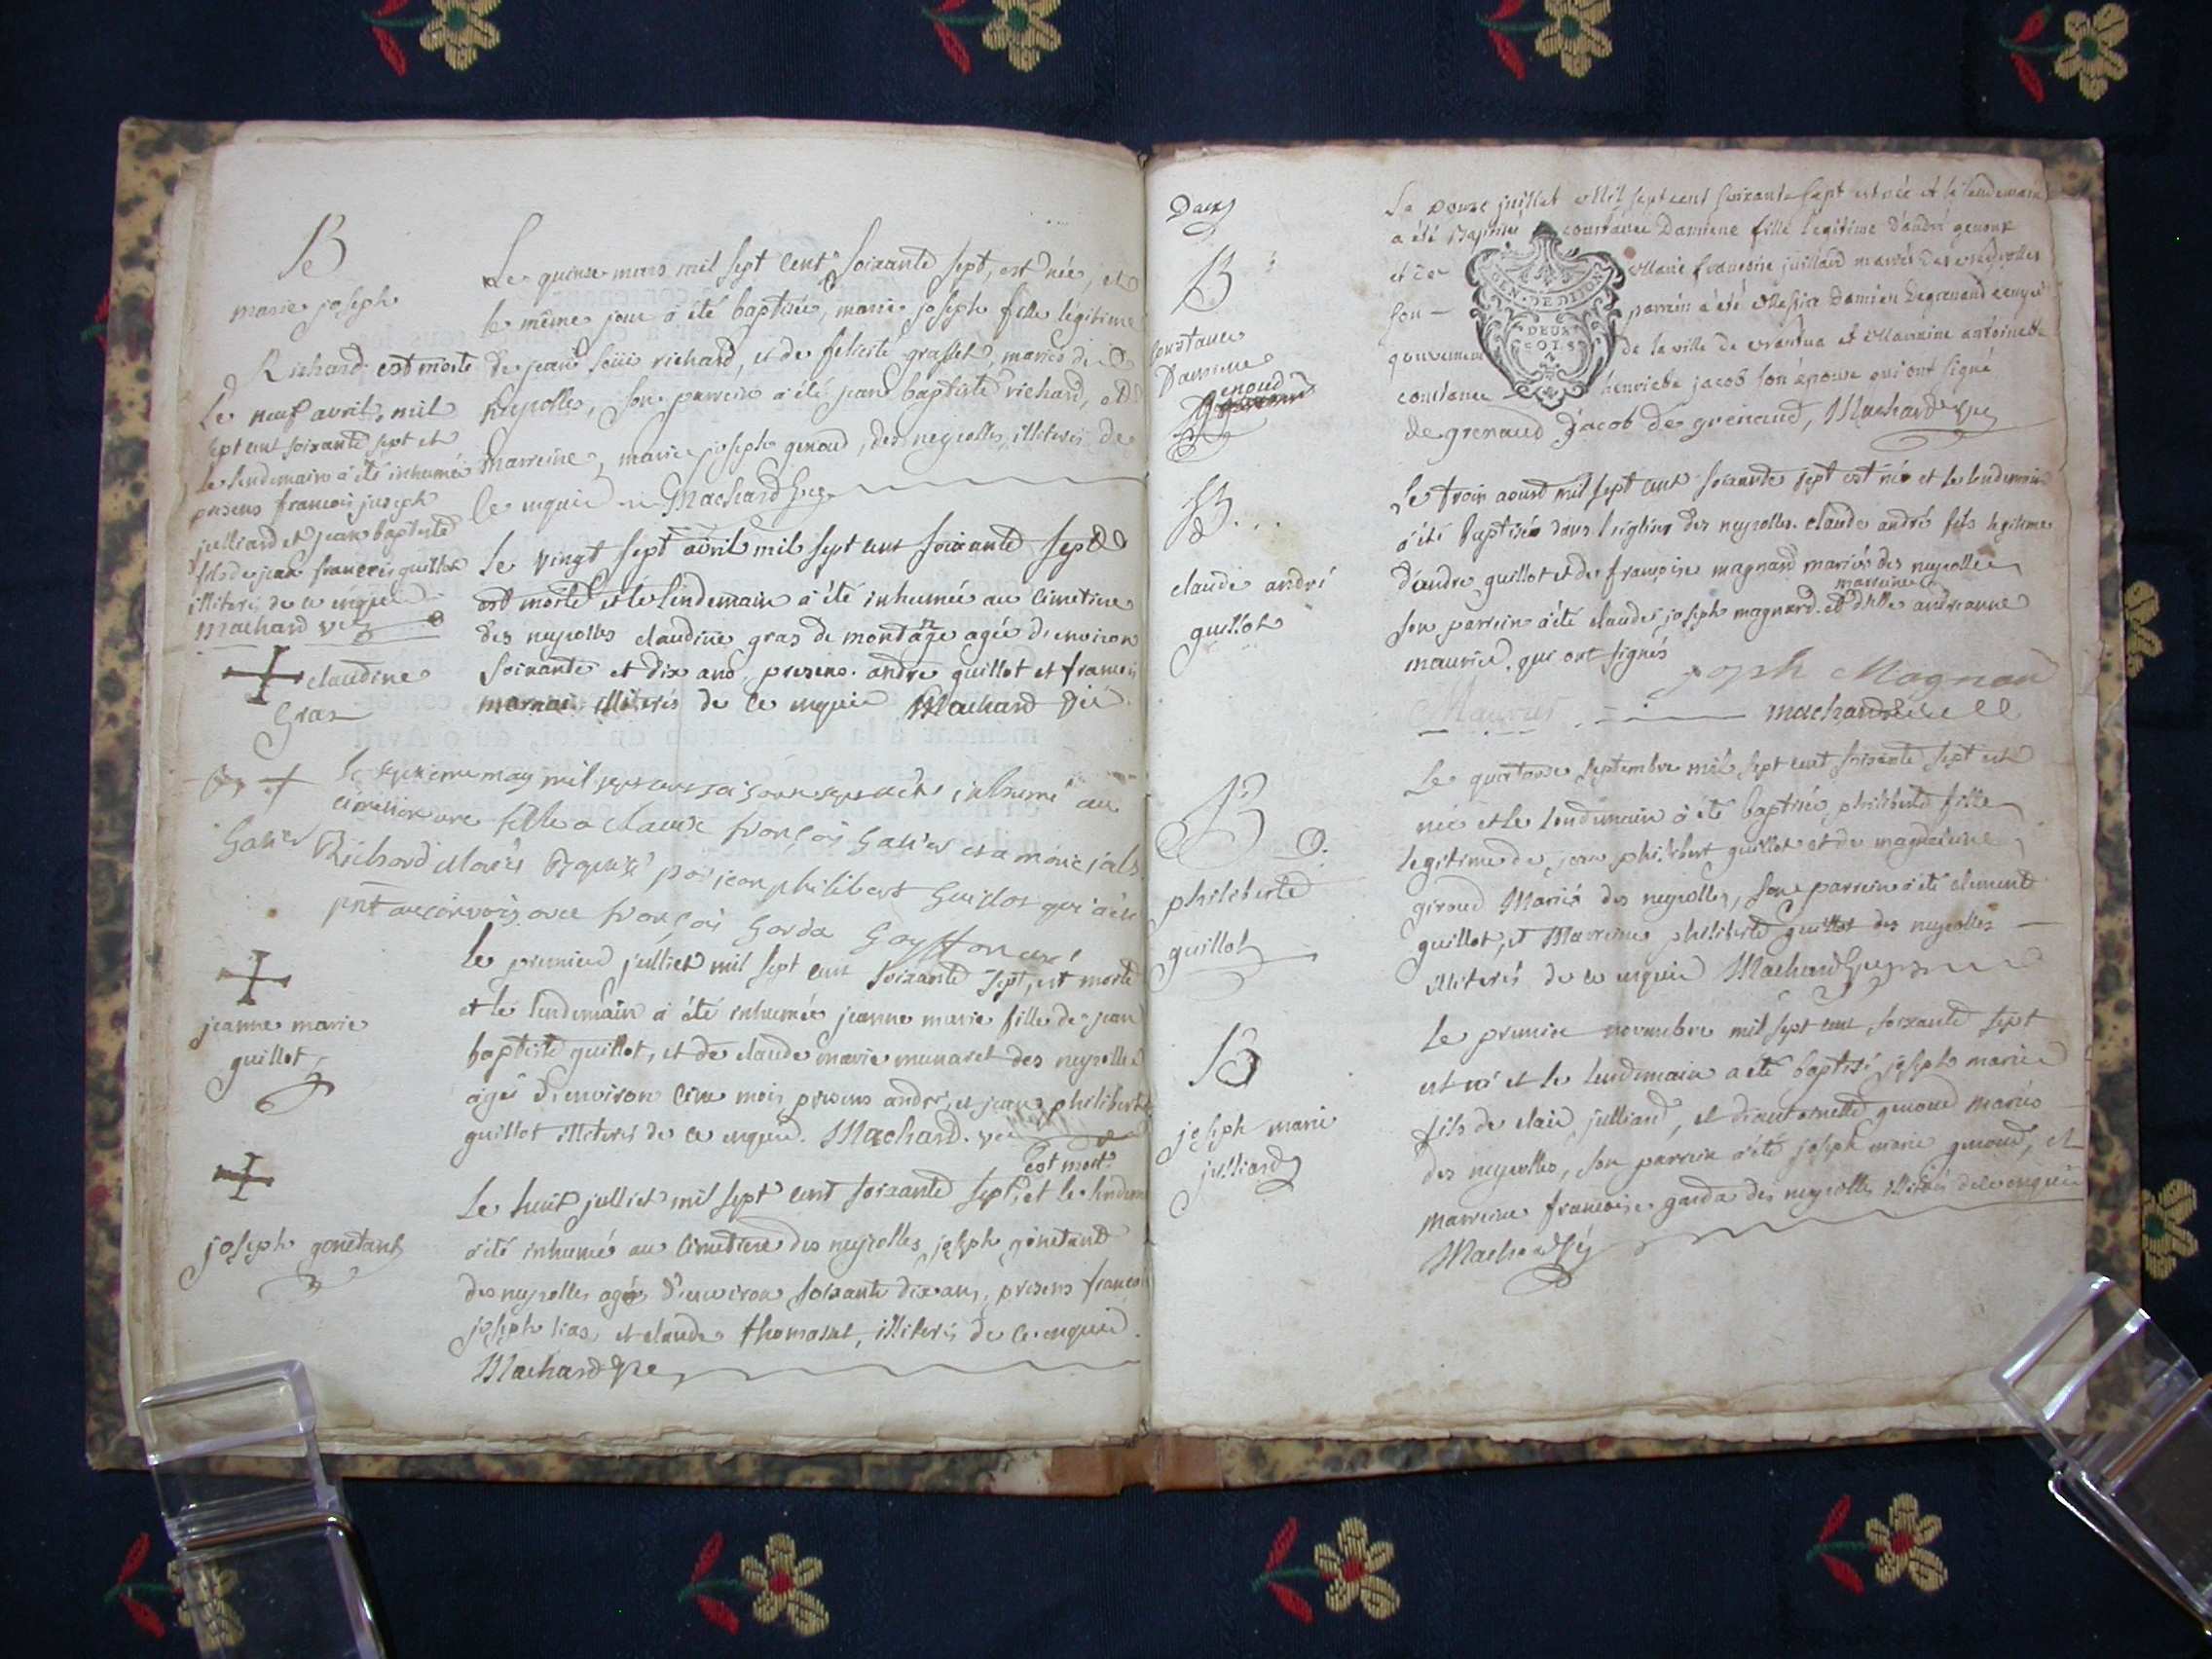 B
marie joseph
Richard est morte
Le neuf avril mil
sept cent soixante sept et
le lendemain a été inhumée
presens francois joseph
julliard et jean baptiste
fils de jean françois guillot
illiterés de ce enquis
Machard vic
Le quinze mars mil sept cent soixante sept, est née, et
le même jour a été baptisée, marie joseph fille légitime
de jean loüis richard, et de felicité grasset, mariés de
neyrolles, son parrein a été jean baptiste richard, et
marreine, marie joseph genoud, des neyrolles, illiterés de
ce enquis Machard vic
claudine
Gras
Le vingt sept avril mil sept cent soixante sept
est morte et le lendemain a été inhumée au cimetiere
des neyrolles claudine gras de montange agée d'environ
soixante et dix ans, presens andre guillot et francois
illiterés de ce enquis Machard vic
may mil
cimetiere une fille a claude françois
Richard par jean philibert Guillot qui a été
avec françois Garda
jeanne marie
guillot
Le premier julliet mil sept cent soixante sept, est morte
et le lendemain a été inhumée jeanne marie fille de jean
baptiste guillot, et de claude marie munaret des neyrolles
agée d'environ cinq mois presens andré, et jean philibert
guillot illiterés de ce enquis. Machard. vic
joseph gonetant
est mort
Le huit julliet mil sept cent soixante sept, et le lendem
a été inhumé au cimetiere des neyrolles joseph gonetant
des neyrolles agé d'environ soixante dix ans, presens franco
joseph et claude thomasset, illiterés de ce enquis.
Machard vic
B
Constance
Damiene
genoud
Le douze juillet Mil sept cent soixante sept est née et le lendemain
a été Baptisée constance Damiene fille legitime d'andré genoux
et de Marie francoise juilliard mariés des neyrolles
son parrein a été Messire Damien Degrenaud ecuyer
gouverneur de la ville de Nantua et Marraine antoinette
constance henriette jacob son épouse qui ont signé
de grenaud Jacob de grenaud, Machard vic
GEN. DE DIJON
DEUX
SOLS
B.
claude andré
guillot
Le trois aoust mil sept cent soixante sept est né et le lendemain
a été baptisé dans l'eglise des neyrolles. claude andré fils legitime
d'andre guillot et de françoise magnard mariés des neyrolles
marreine
son parrein a été claude joseph magnard. et dlle andreanne
maurier, qui ont signés
joseph Magnard
Maurier machard vic
B
philiberte
guillot
Le quatorze septembre mil sept cent soixante sept est
née et le lendemain a été baptisée philiberte fille
legitime de jean philibert guillot et de magdeleine
giroud Mariés des neyrolles, son parrein a été clement
guillot, et Marreine philiberte guillot des neyrolles
illiterés de ce enquis Machard vic
B
joseph marie
julliard
Le premier novembre mil sept cent soixante sept
est né et le lendemain a été baptisé joseph marie
fils de claude julliard, et d'antoinette genoud mariés
des neyrolles, son parrein a été joseph marie genoud, et
marreine francoise garda des neyrolles illiterés de ce enquis
Machard vic